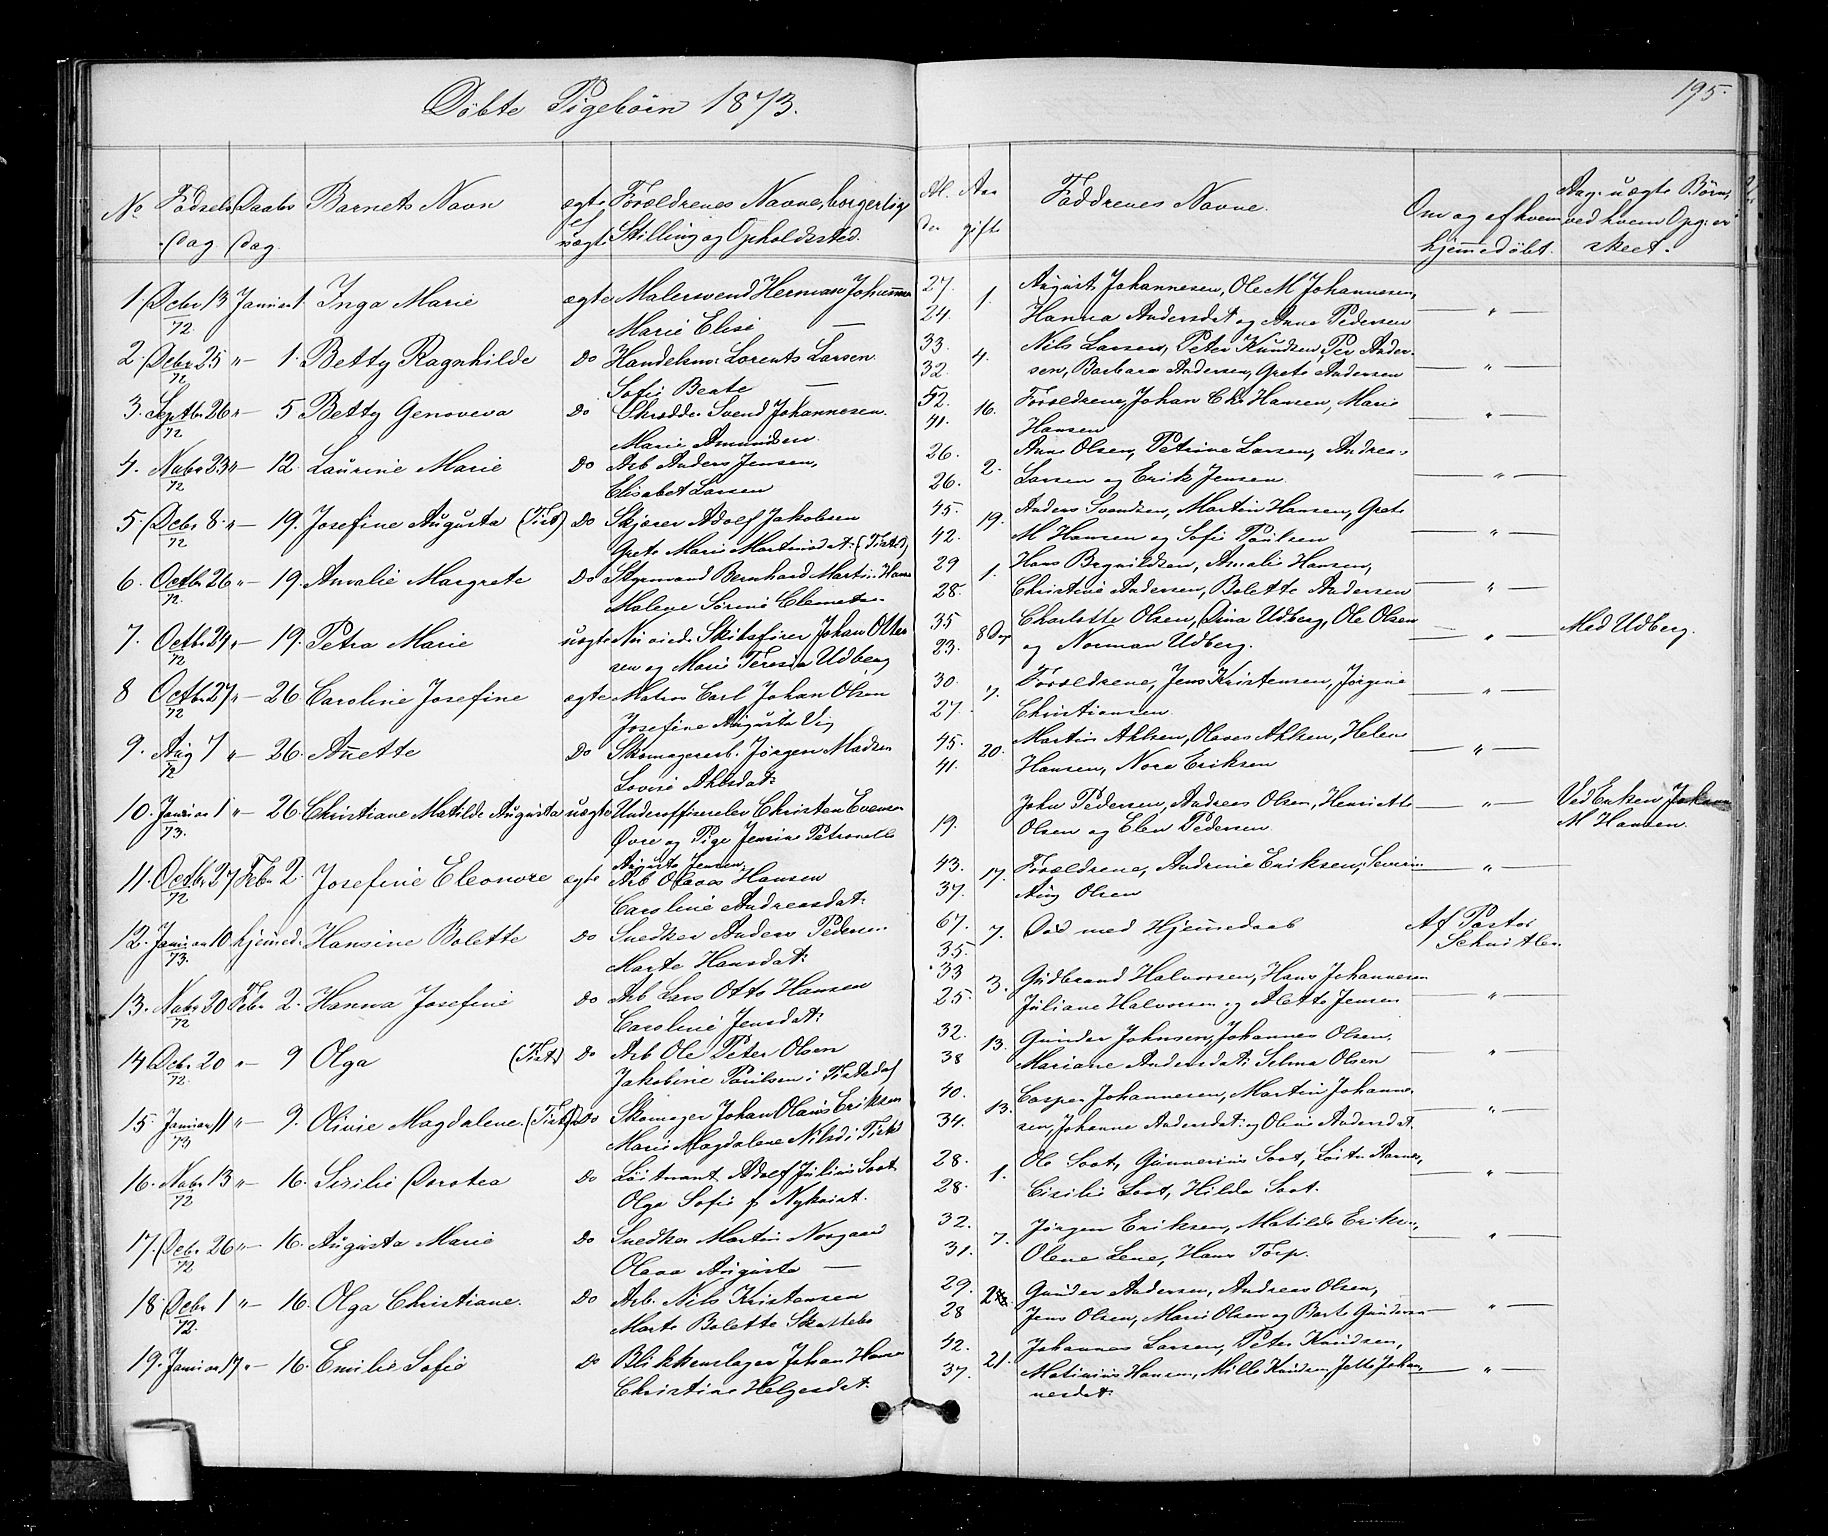 195.
Døbte Pigebörn 1873.
No Fødsels Daabs Barnets Navn ægte Forældrenes Navne, borgerlig Al Aar Faddrenes Navne. Om og af hvem Ang. uægte Børn,
Dag Dag. el uægte Stilling og Opholdssted. der gift hjemmedöbt. ved hvem Opg. er skeet.
1. Dcbr 13 Januar 1. Inga Marie ægte Malersvend Herman 27. 1. August Johannesen, Ole M Johannesen,
72 Marie Elise — 24. Hanna Andersdat og Anne Pedersen — " —
2. Dcbr 25 " — 1. Betty Ragnhilde Do Handelsm: Lorents Larsen 33. 4. Nils Larsen, Peter Knudsen, Per Ander-
72 Sofie Beate — 32. sen, Barbara Andersen, Grete Andersen — " —
3. Septbr 26 " — 5 Betty Genoveva Do Skrædder Svend Johannesen. 52. 16. Forældrene, Johan Chr Hansen, Marie
72 Marie Amundsen. 41. Hansen — " —
4. Nvbr 23 " — 12. Laurine Marie Do Arb Anders Jensen, 26. 2. Anne Olsen, Petrine Larsen, Andreas
72 Elisabet Larsen 26. Larsen og Erik Jensen. — " —
5. Dcbr 8 " — 19. Josefine Augusta (Tist) Do Skjærer Adolf Jakobsen 45. 19. Anders Svendsen, Martin Hansen, Grete
72 Grete Marie Martinsdat: (Tisted) 42. M Hansen og Sofie Paulsen — " —
6. Octbr 26 " — 19. Amalie Margrete Do Styrmand Bernhard Martin Hans 29 1. Hans Bryнildsen, Amalie Hansen,
72. Malene Sørine Clemets 28. Christine Andersen, Bolette Andersen — " —
7. Octbr 29 " — 19. Petra Marie uægte Skibsfører Johan Otter 35 8 Christ Charlotte Olsen, Dina Udberg, Ole Olsen Med Udberg.
72 sen og Marie Teresia Udberg 23. og Norman Udberg. — " —
8 Octbr 27 " — 26 Caroline Josefine ægte Matros Carl Johan Olsen 30. 7. Forældrene, Jens Kristensen, Jørgine
72 Josefine Augusta Vig 27. Christiansen. — " —
9. Aug 7 " — 26. Anette Do Skomagerarb. Jørgen Madsen 45. 20. Martin Ahlsen, Olaves Ahlsen, Helene
72 Lovise Ahlsdat: 41. Hansen, Nora Eriksen — " —
10. Januar 1 " — 26. Christiane Matilde Augusta uægte Underoffiserelev Christen Evensen John Pedersen, Andreas Olsen, Henriette — " — Ved Enken Johan
73. Øvre og Pige Jensine Petronelle 19. Olsen og Elen Pedersen. M Hansen.
Augusta Jensen.
11. Octbr 27 Febr 2. Josefine Eleonore ægte Arb Olaves Hansen 43. 17. Forældrene, Andrine Eriksen, Severin — " —
72 Caroline Andreasdat: 37. Aug Olsen
12. Januar 10. hjemmed. Hansine Bolette Do Snedker Anders Pedersen 67. 7. Død med Hjemmedaab Af Pastor
73. Marte Hansdat: 35. Schnitler
13. Nvbr 20 Febr 2. Hanna Josefine Do Arb Lars Otto Hansen 33 3. Gudbrand Halvorsen, Hans Johannesen
72 Caroline Jensdat: 25. Juliane Halvorsen og Alette Jensen — " —
14 Dcbr. 20 " — 9 Olga (Tist) Do Arb Ole Peter Olsen 32. 13. Gunder Johnsen, Johannes Olsen,
72. Jakobine Paulsen i Tistedal 38 Mariane Andersdat: Selma Olsen — " —
15. Januar 11 " — 9. Olivie Magdalene. (Tist) Do Skomager Johan Olaus Eriksen 40. 13. Casper Johannesen, Martin Johanne-
73 Marie Magdalene Nilsd i Tisted 34. sen, Johanne Andersdat: og Olene Andersdat. — " —
16. Nvbr 13 " — 16. Sesilie Dorotea Do Löitnant Adolf Julius Soot 28. 1. Ole Soot, Gunnerius Soot, Löitn. Aarnes,
72 Olga Sofie f Nykvist. 28. Cisilie Soot, Hilda Soot. — " —
17. Dcbr 26 " — 16. Augusta Marie Do Snedker Martin Norgaard 32. 7. Jørgen Eriksen, Matilde Eriks.,
72 Olava Augusta — 31. Olene Lene, Hans Torp. — " —
18. Dcbr 1 " — 16. Olga Christiane. Do Arb. Nils Kristensen 29. Gunder Andersen, Andreas Olsen,
72. Marte Bolette Skattebo 28 Jens Olsen, Marie Olsen og Berte Gundersen — " —
19. Januar 17 " — 16. Emilie Sofie Do Blikkenslager Johan Hansen 42. 21. Johannes Larsen, Peter Knudsen,
Christine Helgesdat: 37. Matinius Hansen, Mille Knudsen, Jette Johan- — " —
nesdat: